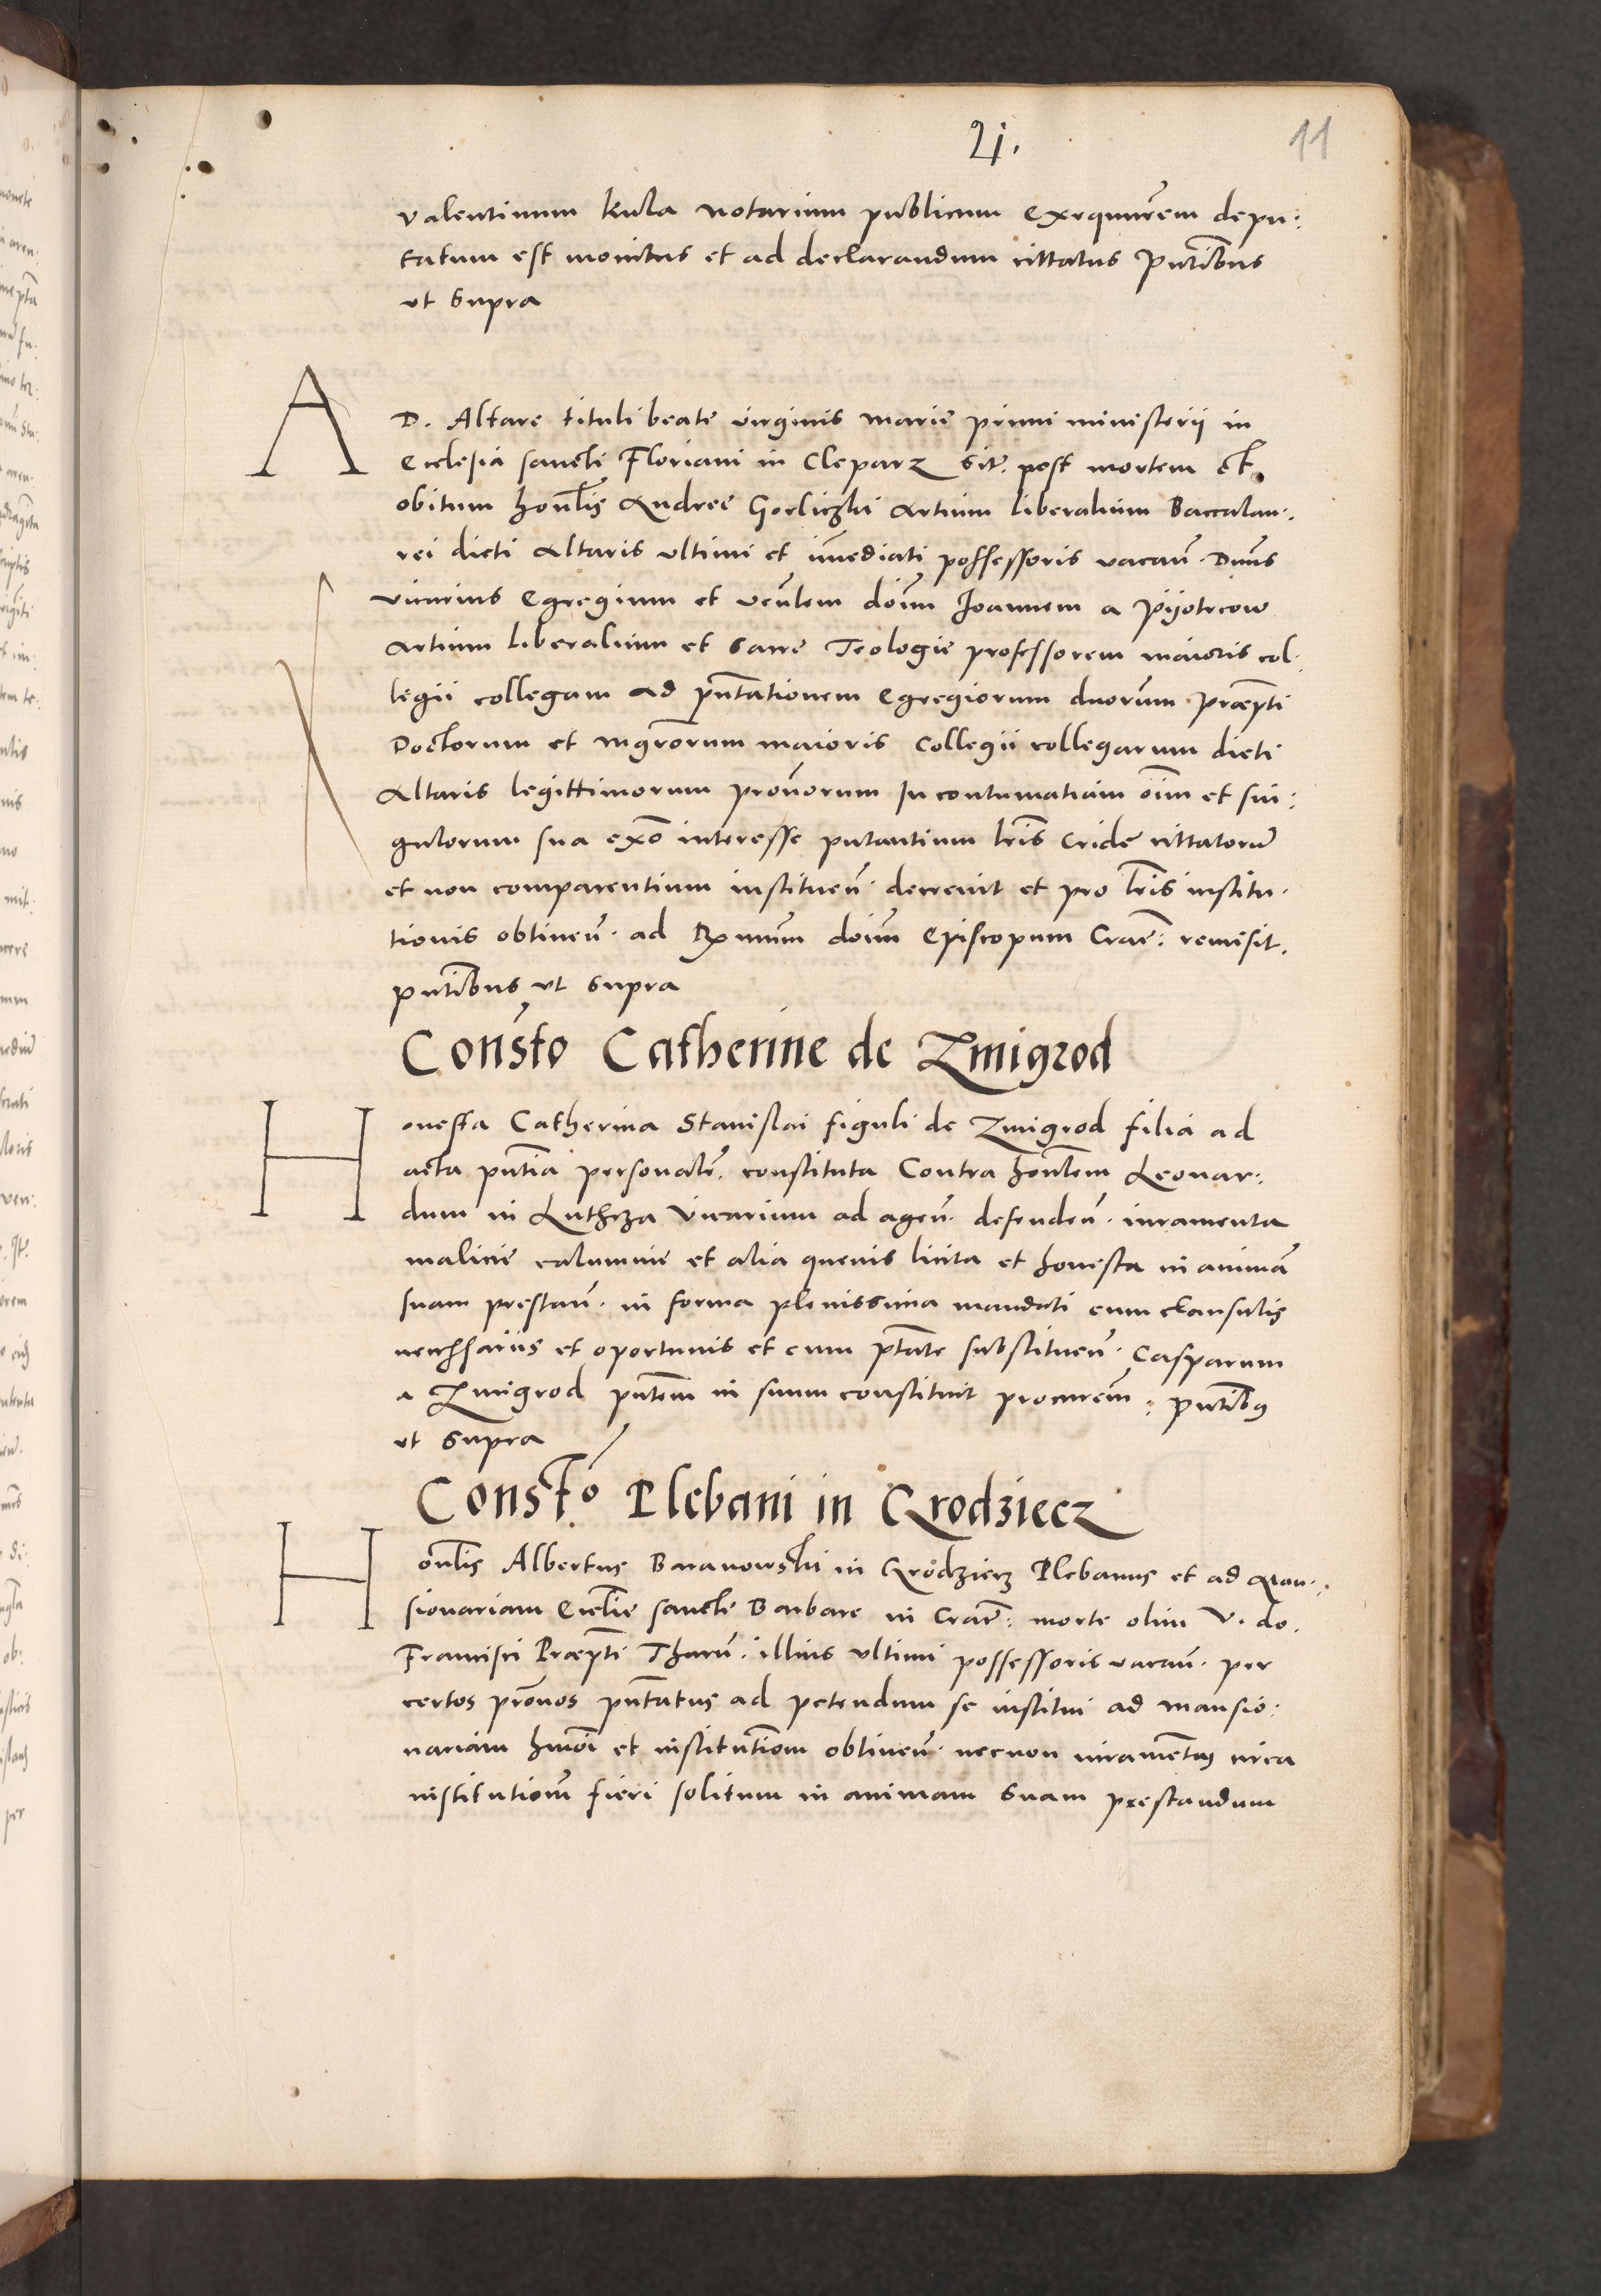 21. 11
valentinum kula notarium publicum exequutorem depu:
tatum est monitus et ad declarandum cittatus pntibus
ut supra
AD. Altare tituli beate virginis marie primi ministerij in
Ecclesia sancti Floriani in Cleparz sit. post mortem et
obitum honlis Andree Gorliczki Artium liberalium Baccalau:
rei dicti Altaris ultimi et imediati possessoris vacan. Dnus
vicarius Egregium et venlem doim Joannem a pijotrcow
Artium liberalium et sacre Teologie professorem maioris col:
legii collegam ad pntationem egregiorum duorum
Doctorum et mgrorum maioris collegii collegarum dicti
Altaris legittimorum pronorum In contumatiam oim et sin:
gulorum sua exo interesse putantium lris cride cittatoru
et non comparentium instituen. decrevit et pro lris institu:
tionis obtinen. ad Rxmum doim Episcopum Crac: remisit.
pntibus ut supra
Consto Catherine de Zmigrod
Honesta Catherina Stanislai figuli de Zmigrod filia ad
acta pntia personale. constituta Contra honlem Leonar:
dum in Luthcza vicarium ad agen. defenden. iuramenta
malicie calumnie et alia quevis licita et honesta in anima
suam prestan. in forma plenissima mandati cum clausulis
necessariis et oportunis et cum ptate substituen. Casparum
a Zmigrod pntem in suum constituit procurem: pntibus
ut supra
Consto Plebani in Grodziecz
Honlis Albertus Baranowski in Grodziecz Plebanus et ad Man:
sionariam Ecclie sancte Barbare in Crac: morte olim V. do.
Francisci illius ultimi possessoris vacan. per
certos pronos pntatus ad petendum se institui ad mansio:
nariam hmoi et institutiom obtinen. necnon iuramentum circa
institutionem fieri solitum in animam suam prestandum